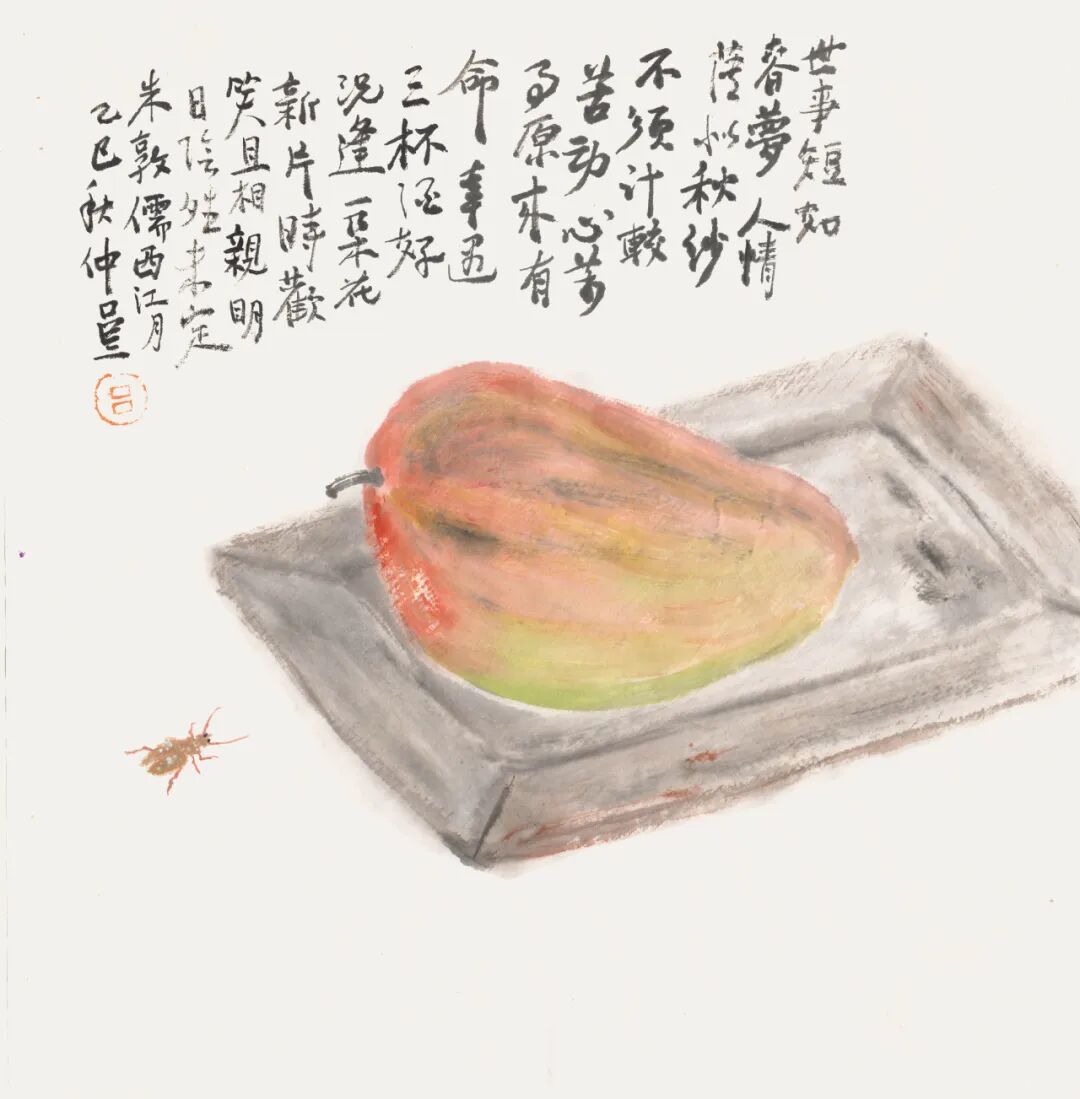 世事短如
春夢人情
薄似秋紗
不須計較
苦动心萬
事原來有
命幸遇
三杯酒好
況逢一朵花
新片時歡
笑且相親明
日陰晴未定
朱敦儒西江月
乙巳秋仲吕三
吕